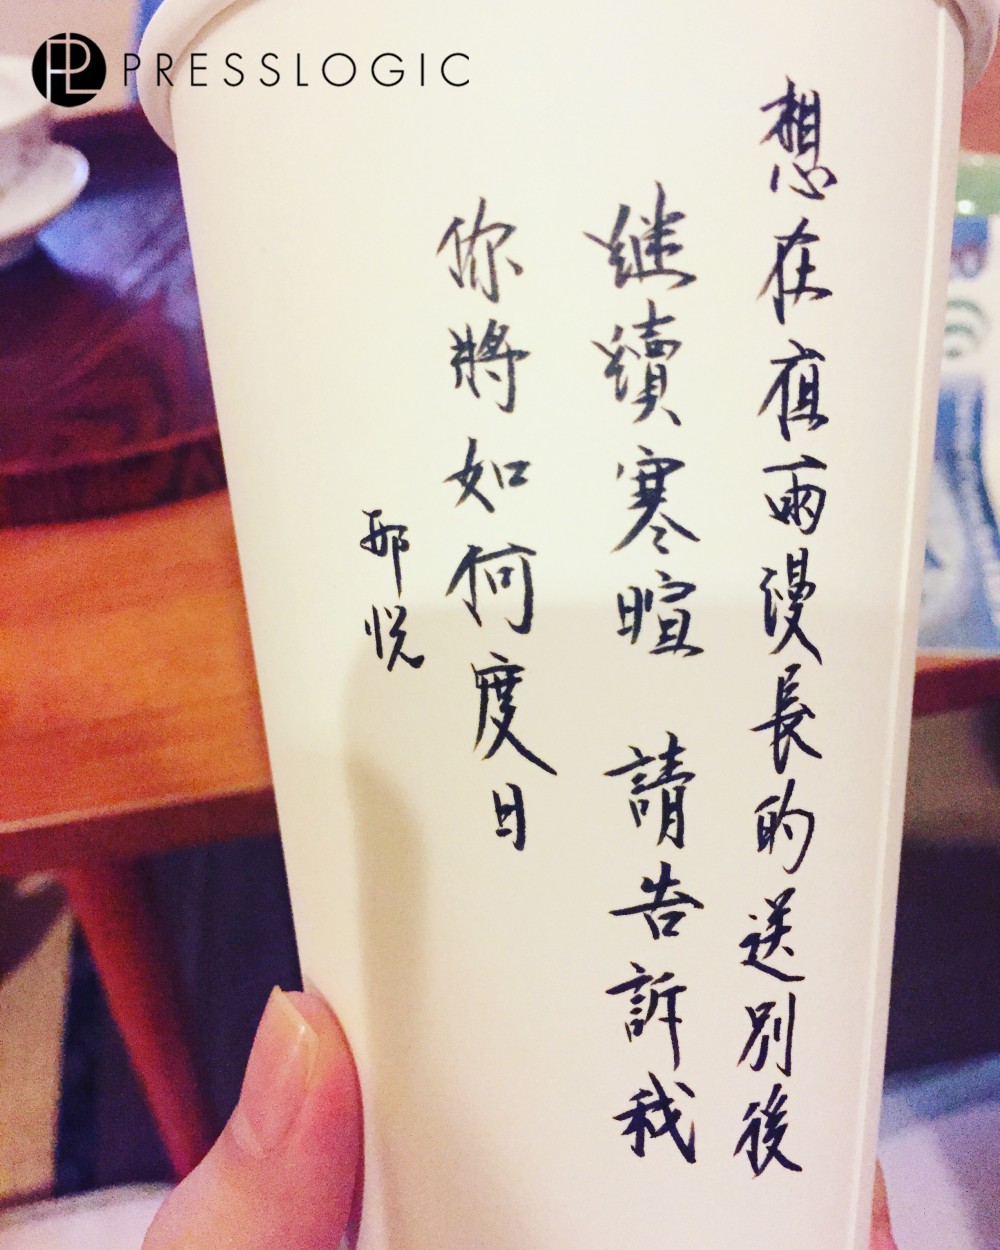 PRESSLOGIC
想在雨漫長的送別後
继續寒暄 請告訴我
你將如何度日
邢悅